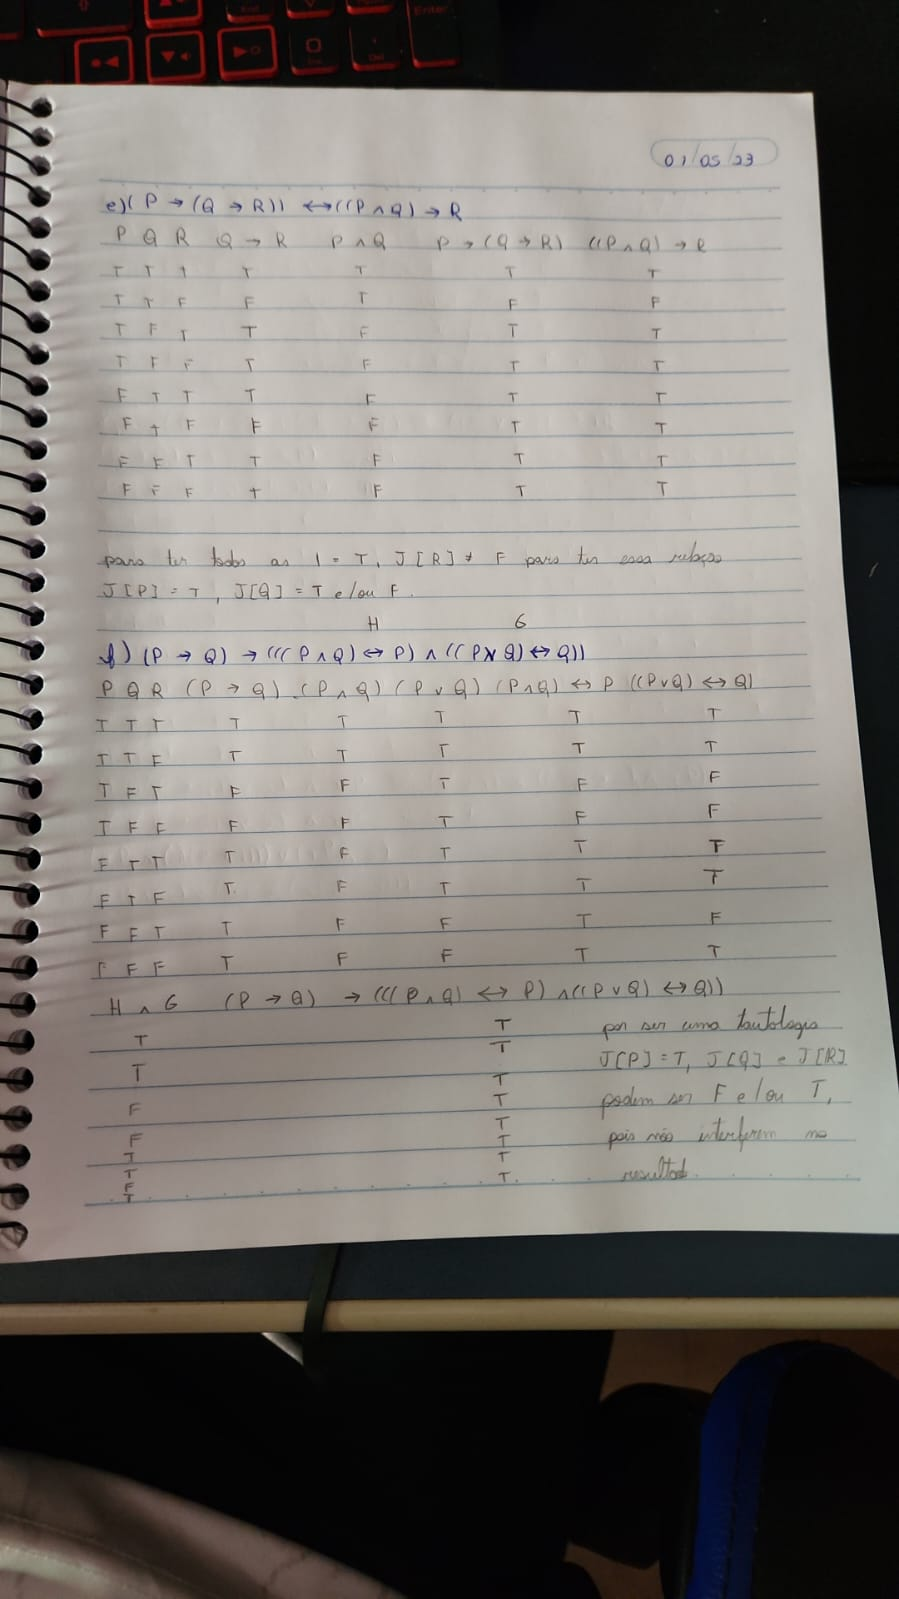 01/05/23
e)(P → (Q → R)) ↔ ((P ∧ Q) → R
P Q R Q → R P ∧ Q P → (Q → R) ((P ∧ Q) → R
T T T T T T T
T T F F T F F
T F T T F T T
T F F T F T T
F T T T F T T
F T F F F T T
F F T T F T T
F F F T F T T
para ter todos as 1 = T, J[R] ≠ F para ter essa relação
J[P] = T, J[Q] = T e/ou F.
H G
f) (P → Q) → (((P ∧ Q) ↔ P) ∧ ((P ∨ Q) ↔ Q))
P Q R (P → Q) (P ∧ Q) (P ∨ Q) (P ∧ Q) ↔ P ((P ∨ Q) ↔ Q)
T T T T T T T T
T T F T T T T T
T F T F F T F F
T F F F F T F F
F T T T F T T T
F T F T F T T T
F F T T F F T F
F F F T F F T T
H ∧ G (P → Q) → (((P ∧ Q) ↔ P) ∧ ((P ∨ Q) ↔ Q))
T T por ser uma tautologia
T T J[P] = T, J[Q] e J[R]
F T podem ser F e/ou T,
F T pois não interferem no
T T resultado.
T T
F T
T T